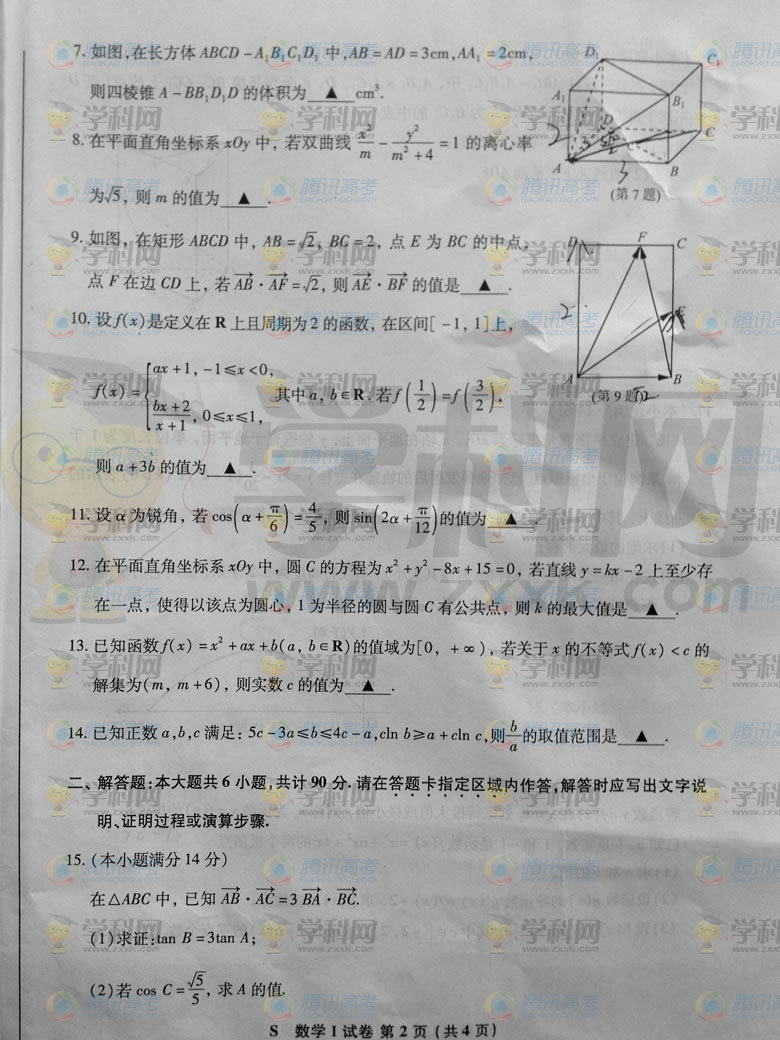 7. 如图,在长方体 ABCD－A₁B₁C₁D₁ 中,AB＝AD＝3cm,AA₁＝2cm,
则四棱锥 A－BB₁D₁D 的体积为 ▲ cm³.
8. 在平面直角坐标系 xOy 中, 若双曲线 x²/m － y²/(m²＋4) ＝1 的离心率
为√5, 则 m 的值为 ▲ .
(第 7 题)
9. 如图, 在矩形 ABCD 中, AB＝√2, BC＝2, 点 E 为 BC 的中点,
点 F 在边 CD 上, 若 AB→·AF→＝√2, 则 AE→·BF→ 的值是 ▲ .
10. 设 f(x) 是定义在 R 上且周期为 2 的函数, 在区间[－1, 1]上,
f(x)＝{ax＋1, －1≤x＜0, (bx＋2)/(x＋1), 0≤x≤1, 其中 a, b∈R. 若 f(1/2)＝f(3/2),
(第 9 题)
则 a＋3b 的值为 ▲ .
11. 设 α 为锐角, 若 cos(α＋π/6)＝4/5, 则 sin(2α＋π/12)的值为 ▲ .
12. 在平面直角坐标系 xOy 中, 圆 C 的方程为 x²＋y²－8x＋15＝0, 若直线 y＝kx－2 上至少存
在一点, 使得以该点为圆心, 1 为半径的圆与圆 C 有公共点, 则 k 的最大值是 ▲ .
13. 已知函数 f(x)＝x²＋ax＋b(a, b∈R)的值域为[0, ＋∞), 若关于 x 的不等式 f(x)＜c 的
解集为(m, m＋6), 则实数 c 的值为 ▲ .
14. 已知正数 a,b,c 满足: 5c－3a≤b≤4c－a,cln b≥a＋cln c,则 b/a 的取值范围是 ▲ .
二、解答题:本大题共 6 小题,共计 90 分. 请在答题卡指定区域内作答,解答时应写出文字说
明、证明过程或演算步骤.
15. (本小题满分 14 分)
在△ABC 中, 已知 AB→·AC→＝3 BA→·BC→.
(1)求证:tan B＝3tan A;
(2)若 cos C＝√5/5, 求 A 的值.
S 数学 I 试卷 第 2 页 (共 4 页)
学科网
www.zxxk.com
腾讯高考